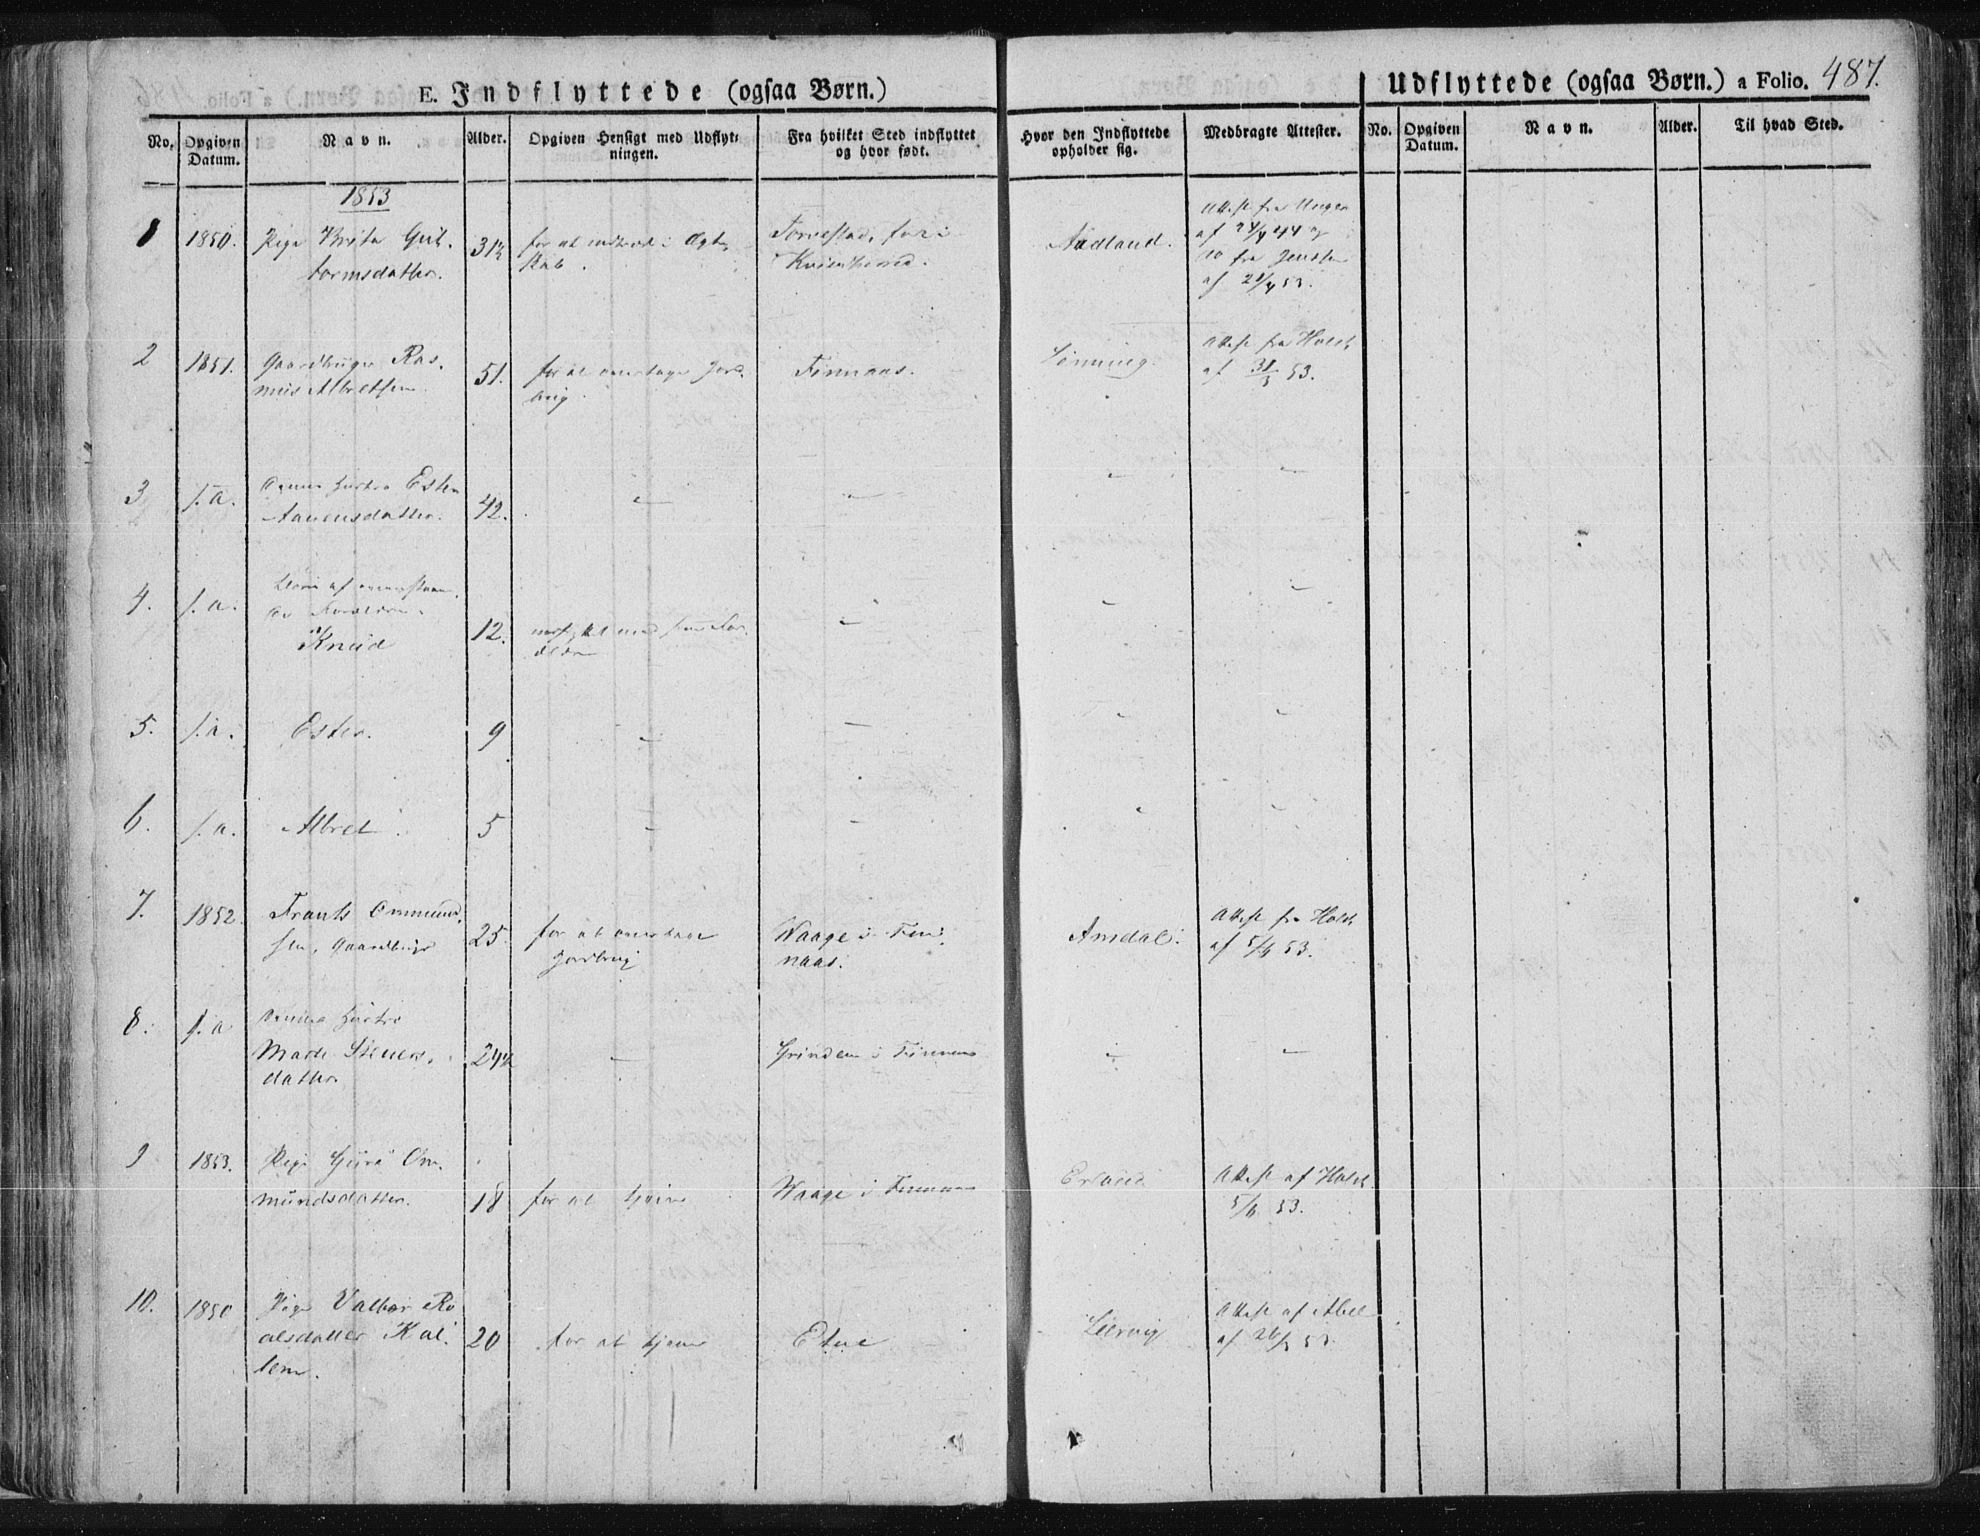 E. Indflyttede (ogsaa Børn.)
Udflyttede (ogsaa Børn.) a Folio. 487.
No. Opgiven Datum. Navn. Alder. Opgiven Hensigt med Udflytningen. Fra hvilket Sted indflyttet og hvor født. Hvor den Indflyttede opholder sig. Medbragte Attester. No. Opgiven Datum. Navn. Alder. Til hvad Sted.
1853
1 1850. Pige Brita Gut-
tormsdatter. 31½ for at indtræde i Ægte-
skab. Torvestad, før i
Aadland. Attest fra
af 24/4 44 og
fra
af 21/4 53.
2 1851. Gaardbruger Ras-
mus Albretsen 51. for at overtage Jord-
brug. Finnaas. Lønning. Attest fra Holck
af 31/3 53.
3 s.a. Dennes Hustro Ester
Aamensdatter. 42. — — " —
4. s.a. Børn af ovenstaaen-
de Forældre.
Knud 12. med sine For-
ældre — " —
5. s.a. Ester. 9 — — " "
6. s.a. Albret 5 — — " "
7. 1852. Frants Ommund-
sen, Gaardbruger 25. for at overtage
Jordbrug Waage i Fin-
naas. Amdal. Attest fra Holck
af 5/6 53.
8. s.a Dennes Hustro
Marte
datter 24½ — Grinden i Finnaas " —
9 1853. Pige Guri Om-
mundsdatter. 18 for at tjene Waage i Finnaas Attest af Holck
5/6 53.
10. 1850 Pige Valbor Ro-
alsdatter 20 for at tjene Etne Lervig Attest af Abel
af 26/3 53.